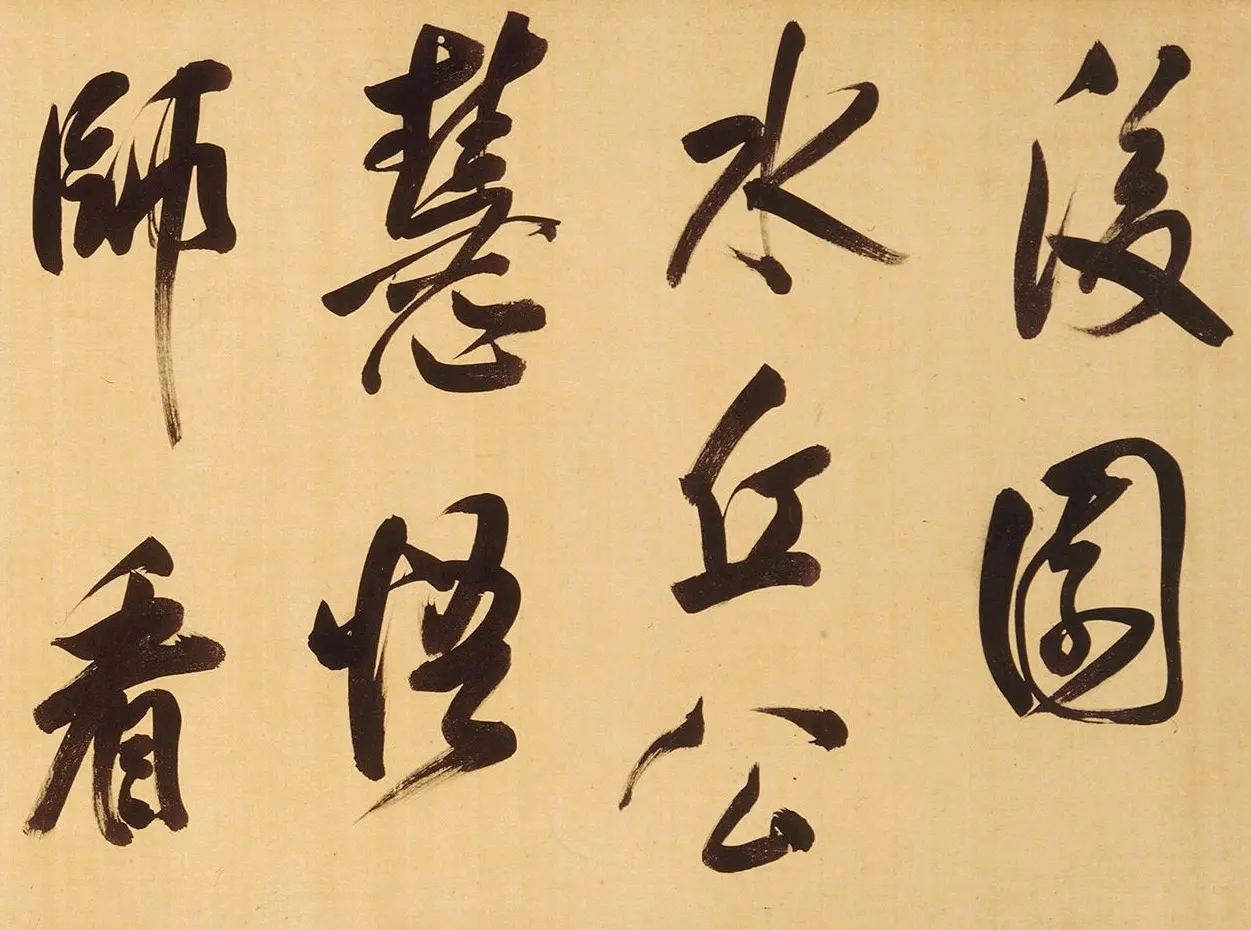 後園
水丘公
慧悟
師看